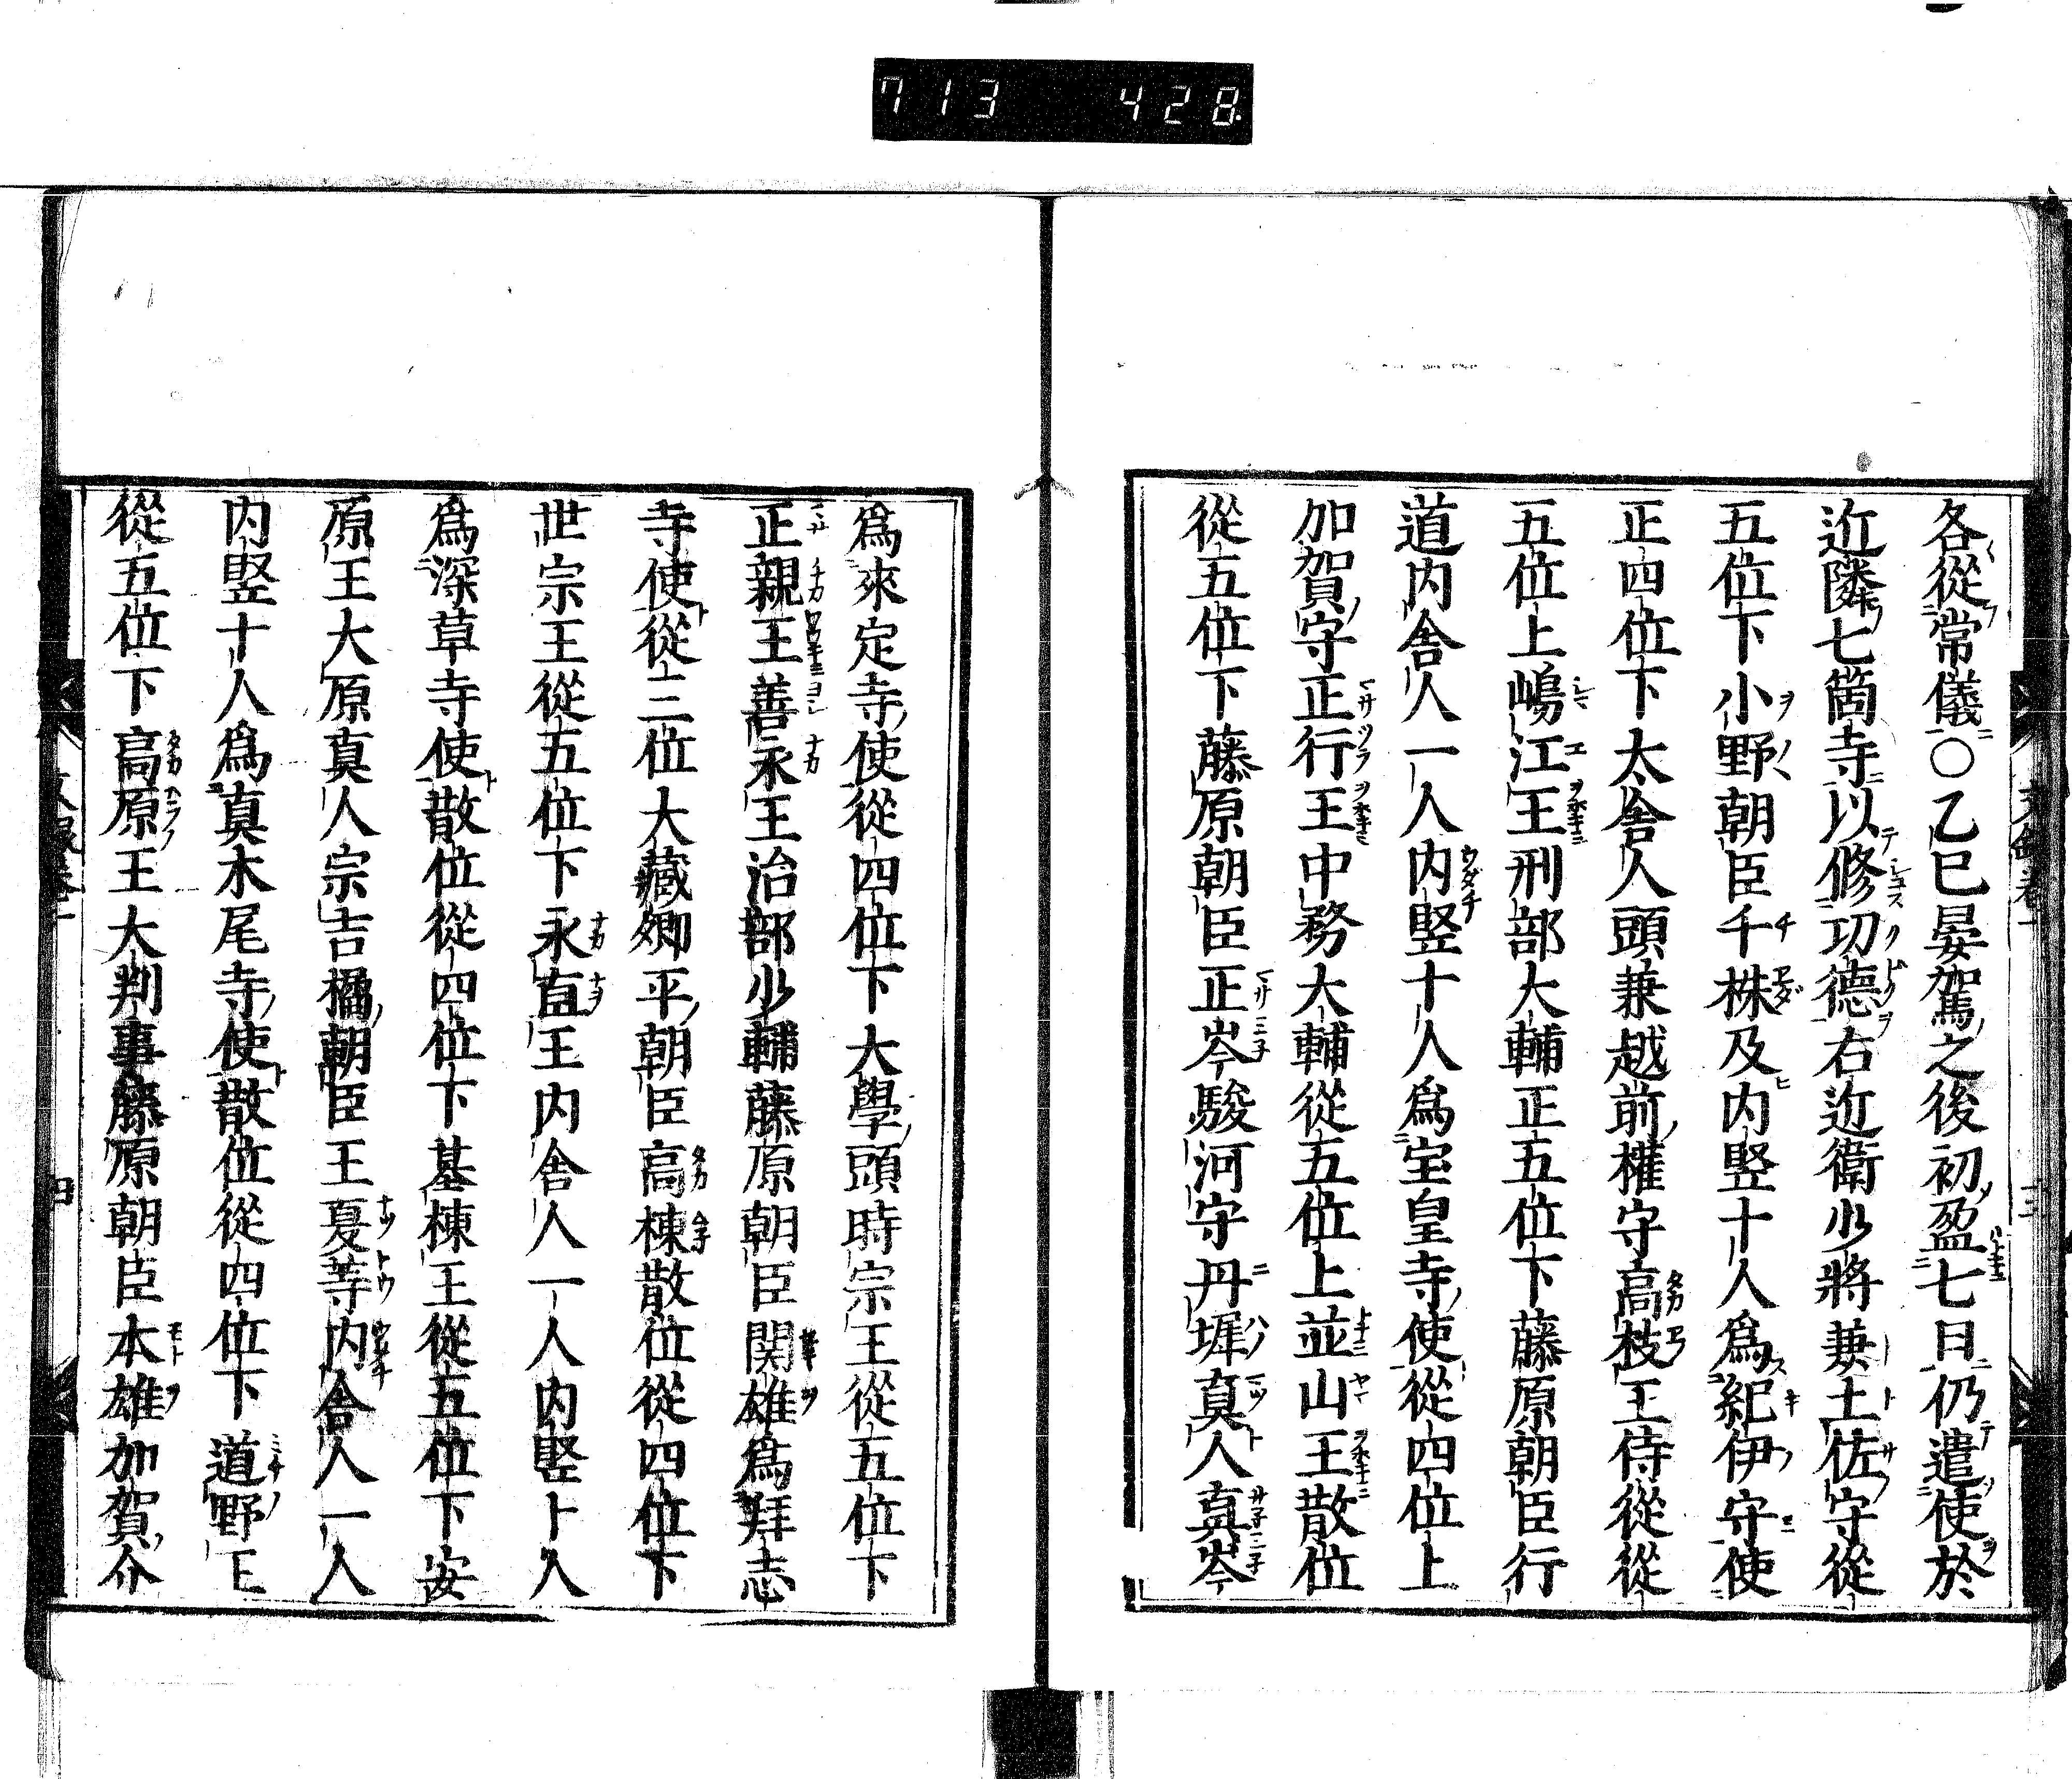 713 428
各從常儀○乙巳晏駕之後初盈七日仍遣使於
近隣七箇寺以修功德右近衛少將兼土佐守從
五位下小野朝臣千株及内竪十人爲紀伊寺使
正四位下大舎人頭兼越前權守高枝王侍從從
五位上嶋江王刑部大輔正五位下藤原朝臣行
道内舎人一人内竪十人爲宝皇寺使從四位上
加賀守正行王中務大輔從五位上並山王散位
從五位下藤原朝臣正岑駿河守丹墀真人真岑
爲來定寺使從四位下大學頭時宗王從五位下
正親王善永王治部少輔藤原朝臣関雄爲拜志
寺使從三位大藏卿平朝臣高棟散位從四位下
世宗王從五位下永直王内舎人一人内竪十人
爲深草寺使散位從四位下基棟王從五位下安
原王大原真人宗吉橘朝臣王夏等内舎人一人
内竪十人爲真木尾寺使散位從四位下道野王
從五位下高原王大判事藤原朝臣本雄加賀介